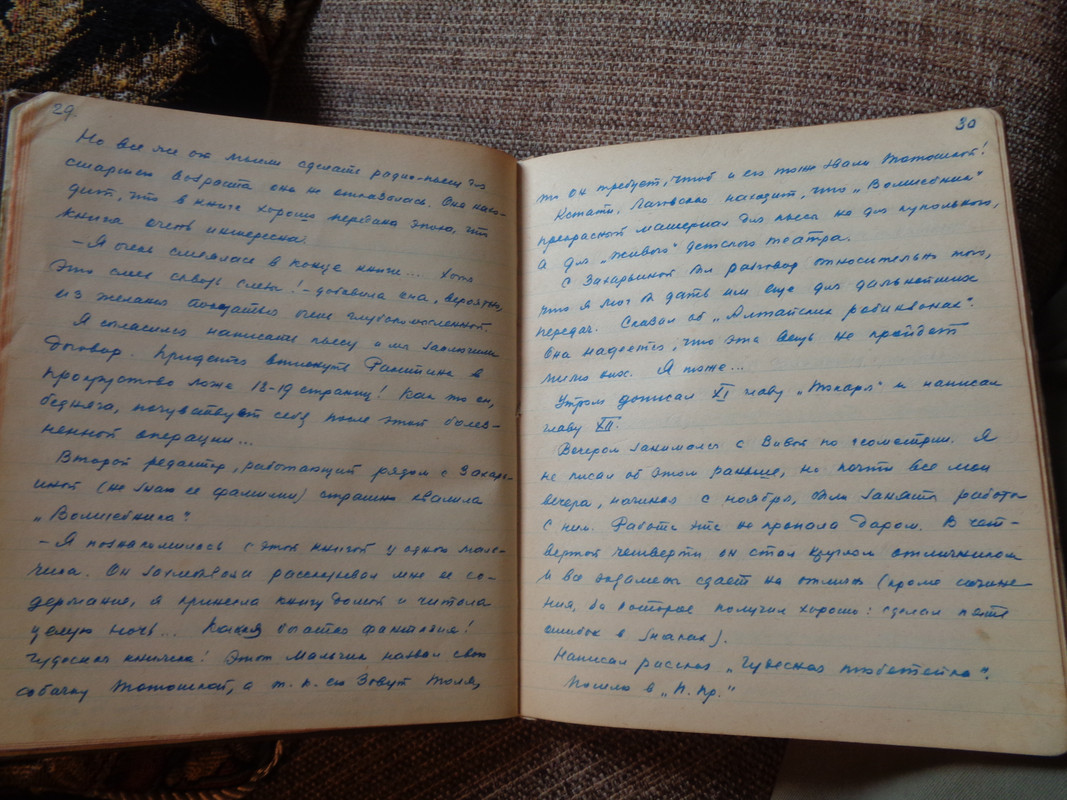 29.
Но все же от мысли сделать радио-пьесу для
старшего возраста она не отказалась. Она нахо-
дит, что в книге хорошо передана эпоха, что
книга очень интересна.
– Я очень смеялась в конце книги... Хотя
это смех сквозь слезы! – добавила она, вероятно,
из желания показаться более глубокомысленной.
Я согласился написать пьесу и мы заключили
договор. Придется втиснуть в
прокрустово ложе 18-19 страниц! Как то он,
бедняга, почувствует себя после этой болез-
ненной операции...
Второй редактор, работающий рядом с Захарь-
иной (не знаю ее фамилии) страшно хвалила
„Волшебника".
– Я познакомилась с этой книгой у одного маль-
чика. Он захлебывался рассказывал мне ее со-
держание, я принесла книгу домой и читала
целую ночь... Какая богатая фантазия!
Чудесная книжка! Этот мальчик назвал свою
собачку Тотошкой, а т. к. его зовут Толя,
30
то он требует, чтоб и его тоже звали Тотошкой!
Кстати, находит, что „Волшебник"
прекрасный материал для пьесы не для кукольного,
а для „живого" детского театра.
С Захарьиной был разговор относительно того,
что я мог бы дать им еще для дальнейших
передач. Сказал об „Алтайских робинзонах".
Она надеется, что эта вещь не пройдет
мимо них. Я тоже...
Утром дописал XI главу „Токаря" и написал
главу XII.
Вечером занимались с Вивой по геометрии. Я
не писал об этом раньше, но почти все мои
вечера, начиная с ноября, были заняты работой
с ним. Работа эта не пропала даром. В чет-
вертой четверти он стал круглым отличником
и все экзамены сдает на отлично (кроме сочине-
ния, за которое получил хорошо: сделал пять
ошибок в знаках).
Написал рассказ „Чудесная тюбетейка".
Пошло в „П. Пр."